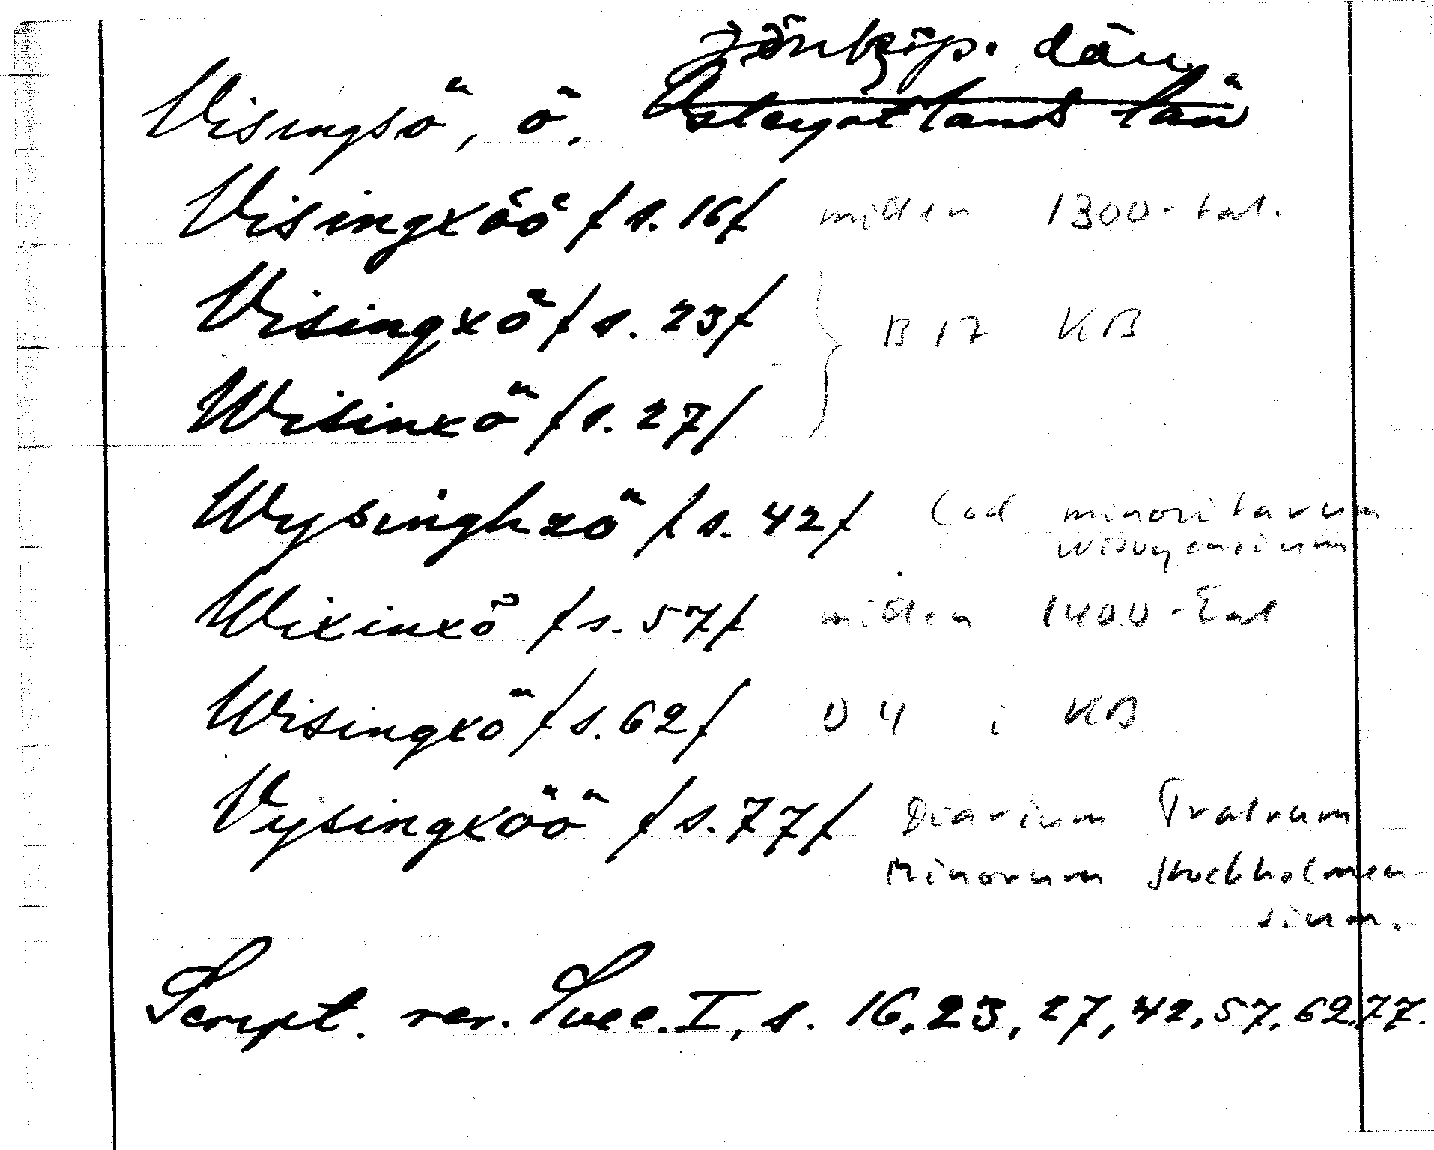 Jönköp. län
Visingsö, ö. Östergötlands län
Visingxöö /s. 16/ mitten 1300-tal.
Visingxö /s. 23/
B 17 KB
Wisinxö /s. 27/
Wysinghxö /s. 42/ Cod minoritarum
Wisbyensium
Wixinxö /s. 57/ mitten 1400-tal
Wisingxö /s. 62/ D 4 i KB
Vysingxöö /s. 77/ Diarium Fratrum
Minorum Stockholmen
sium.
Script. rer. Svec. I, s. 16, 23, 27, 42, 57, 62, 77.